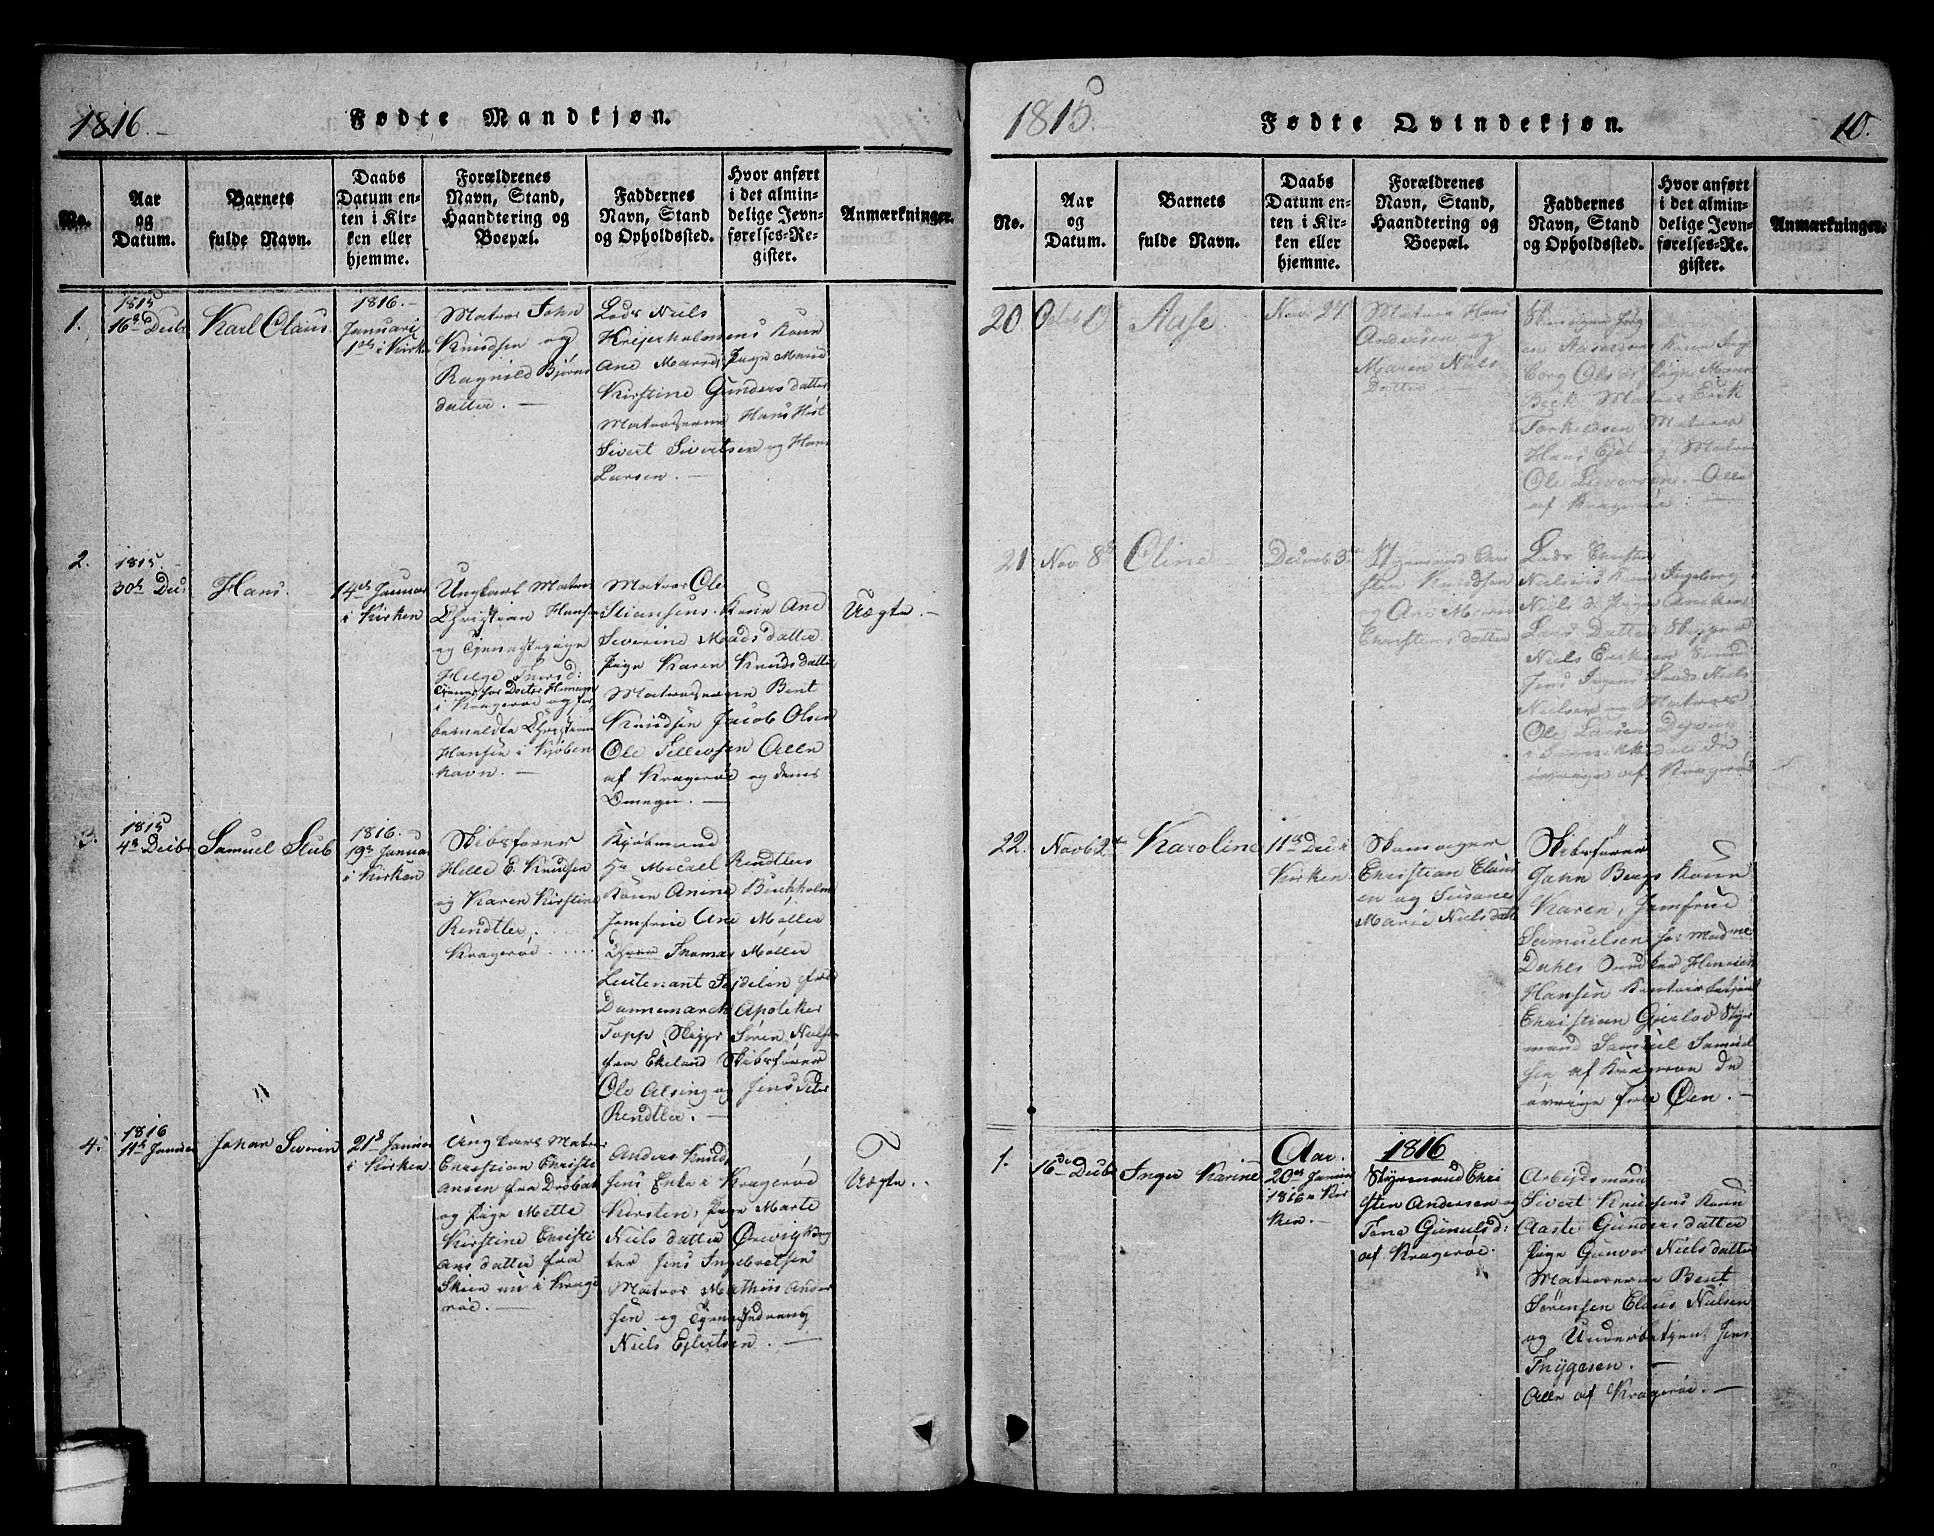 1816.
Fødte Mandkjøn.
No.
Aar
og
Datum.
Barnets
fulde Navn.
Daabs
Datum en-
ten i Kir-
ken eller
hjemme.
Forældrenes
Navn, Stand,
Haandtering og
Boepæl.
Faddernes
Navn, Stand
og Opholdssted.
Hvor anført
i det almin-
delige Jevn-
førelses-Re-
gister.
Anmærkninger.
1.
1815
16de Decbr
Karl Claus
1816.
Januari
1ste i Kirken
Matros John
Knudsen og
Ragnild Bjørns
datter.
Lods Niels
Krejerholmens Kone
Ane Marie, Pige Marie
Kirstine Gundersdatter
Matroserne Hans Höst
Sivert Sivertsen og Hans
Larsen.
2.
1815.
30te Dec
Hans.
14de Januar
i Kirken
Ungkarl Matros
Christian Hansen
og Tjenestepige
Helge
Tjener for Doctor Homann
i Kragerøe og for
bemeldte Christian
Hansen i Kjøben
havn.
Matros Ole
Stiansens Kone Ane
Severine Madsdatter
Pige Karen Knudsdatter
Matroserne Bent
Knudsen Jacob Olsen
Ole Tellevsen Alle
af Kragerøe og denes
Omegn.
Uægte
3.
1815
4de Decbr
Samuel Stub
1816.
19de Januar
i Kirken
Skibsfører
Helle E. Knudsen
og Karen Kirstine
Rendtler.
Kragerøe
Kjøbmand
Micael Rendtlers
Kone Anine Buchholm
Jomfrue Ane Møller
Thomas Møller
Leutenant Sejdelin fra
Dannemarck Apoteker
Topp, Skippr Søren Nielsen
fra Ekeland Skibsfører
Ole Alsing og Jens Peter
Rendtler.
4.
1816
11te Januar
Johan Severin
21de Januar
i Kirken
Ungkarl Matros
Christian Christi
ansen fra Drøbak
og Pige Mette
Kirstine Christi
ansdatter fra
Skien nu i Krage
røe.
Anders Knud
sens Enke i Kragerøe
Kirsten, Pige Marte
Nielsdatter Ørevig
Jens Ingebretsen
Matros Mathis Ander
sen og Tjenestedreng
Niels Ejlertsen.
Uægte.
1815.
Fødte Qvindekjøn.
10.
No.
Aar
og
Datum.
Barnets
fulde Navn.
Daabs
Datum en-
ten i Kir-
ken eller
hjemme.
Forældrenes
Navn, Stand,
Haandtering og
Boepæl.
Faddernes
Navn, Stand
og Opholdssted.
Hvor anført
i det almin-
delige Jevn-
førelses-Re-
gister.
Anmærkninger.
20
Aase
Nov. 27
Matros Hans
Andersen og
Maren Niels
datter
Kone Inge
borg Olsd: Pige Maren
Beck Matros Erik
Torkildsen Matros
Hans Ejel og Matros
Ole Siversen. Alle
af Kragerøe
21
Nov. 8de
Cline
Decemb. 3die
Styrmand Chri
sten Knudsen
og Ane Marie
Christensdatter
Lods Carsten
Nielsens Kone Ingeborg
Niels d: Pige Aneken
Lars Datter
Niels Eriksen
Jens Jegens Lods Niels
Nielsen og Matros
Ole Larsen
de
øvrige af Kragerøe
22.
Novb 2den
Karoline
11te Dec i
Kirken
Christian Claus
en og Susane
Marie Nielsdatter
Skibsfører
John Bergs Kone
Karen, Jomfrue
Samuelsen hos Madme
Dahls Henrich
Hansen
Christian Gierløv Styr
mand Samuel Samuel
sen af Kragerøe de
øvrige fra Øen.
Aar. 1816
1.
16de Decbr
Inger Karine
20de Januar
1816 i Kir
ken.
Styrmand Chri
sten Andersen og
Tone Gunulsd:
af Kragerøe.
Arbejdsmand
Sivert Knudsens Kone
Aaste Gundersdatter
Pige Gunvor Nielsdatter
Matroserne Bent
Sørensen Claus Nielsen
og Underbetjent Jens
Thygesen.
Alle af Kragerøe.